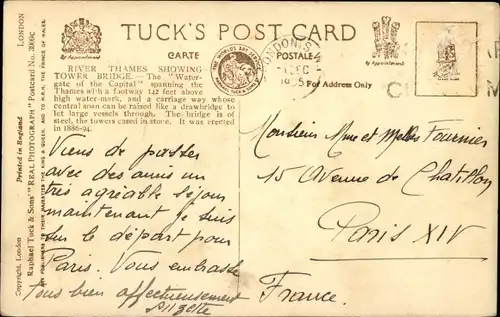 TUCK'S POST CARD
CARTE POSTALE
By Appointment
By Appointment
THE WORLD'S ART SERVICE
RAPHAEL TUCK & SONS LTD
LONDON
DEC
For Address Only
RIVER THAMES SHOWING
TOWER BRIDGE.—The "Water-
gate of the Capital" spanning the
Thames with a footway 142 feet above
high water-mark, and a carriage way whose
central span can be raised like a drawbridge to
let large vessels through. The bridge is of
steel, the towers cased in stone. It was erected
in 1886-94.
Viens de passer
avec des amis un
très agréable séjour
maintenant je suis
sur le départ pour
Paris. Vous embrasse
tous bien affectueusement
Suzette
Monsieur Mme et Melles Fournier
15 Avenue de Chatillon
Paris XIV
France.
Copyright, London Printed in England LONDON
Raphael Tuck & Sons' "REAL PHOTOGRAPH" Postcard No. 3009c
ART PUBLISHERS TO THEIR MAJESTIES THE KING & QUEEN, AND TO H.R.H. THE PRINCE OF WALES.